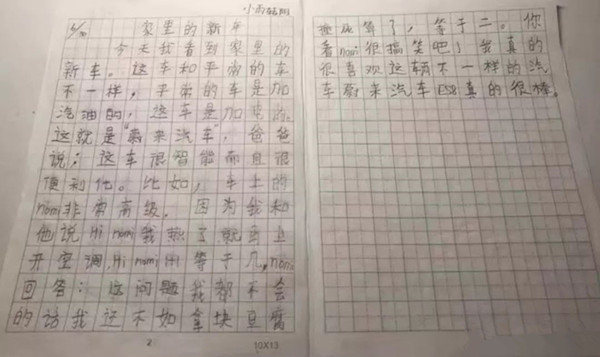 家里的新车
今天我看到家里的
新车。这车和平常的车
不一样，平常的车是加
汽油的，这车是加电的。
这就是“蔚来汽车”。爸爸
说：这车很智能而且很
便利化。比如，车上的
nomi非常高级，因为我和
他说Hi nomi我热了就马上
开空调，Hi nomi 1+1等于几，nomi
回答：这问题我都不会
的话我还不如拿块豆腐
2
10X13
撞死算了，等于二。你
看nomi很搞笑吧！我真的
很喜欢这辆不一样的汽
车蔚来汽车ES8真的很棒。